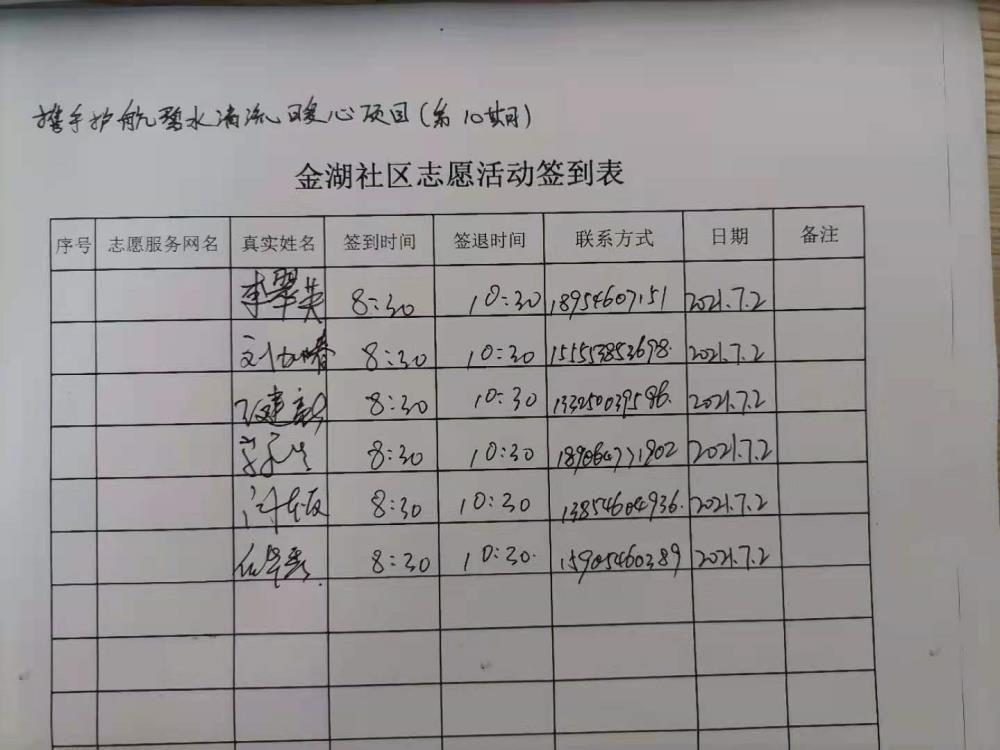 携手护航碧水清流暖心项目(第10期)
金湖社区志愿活动签到表
序号 志愿服务网名 真实姓名 签到时间 签退时间 联系方式 日期 备注
李翠英 8:30 10:30 18954607151 2021.7.2
8:30 10:30 15153853698. 2021.7.2
8:30 10:30 133250039596. 2021.7.2
8:30 10:30 18906471902 2021.7.2
8:30 10:30 13854604936. 2021.7.2
8:30 10:30. 15905460389 2021.7.2